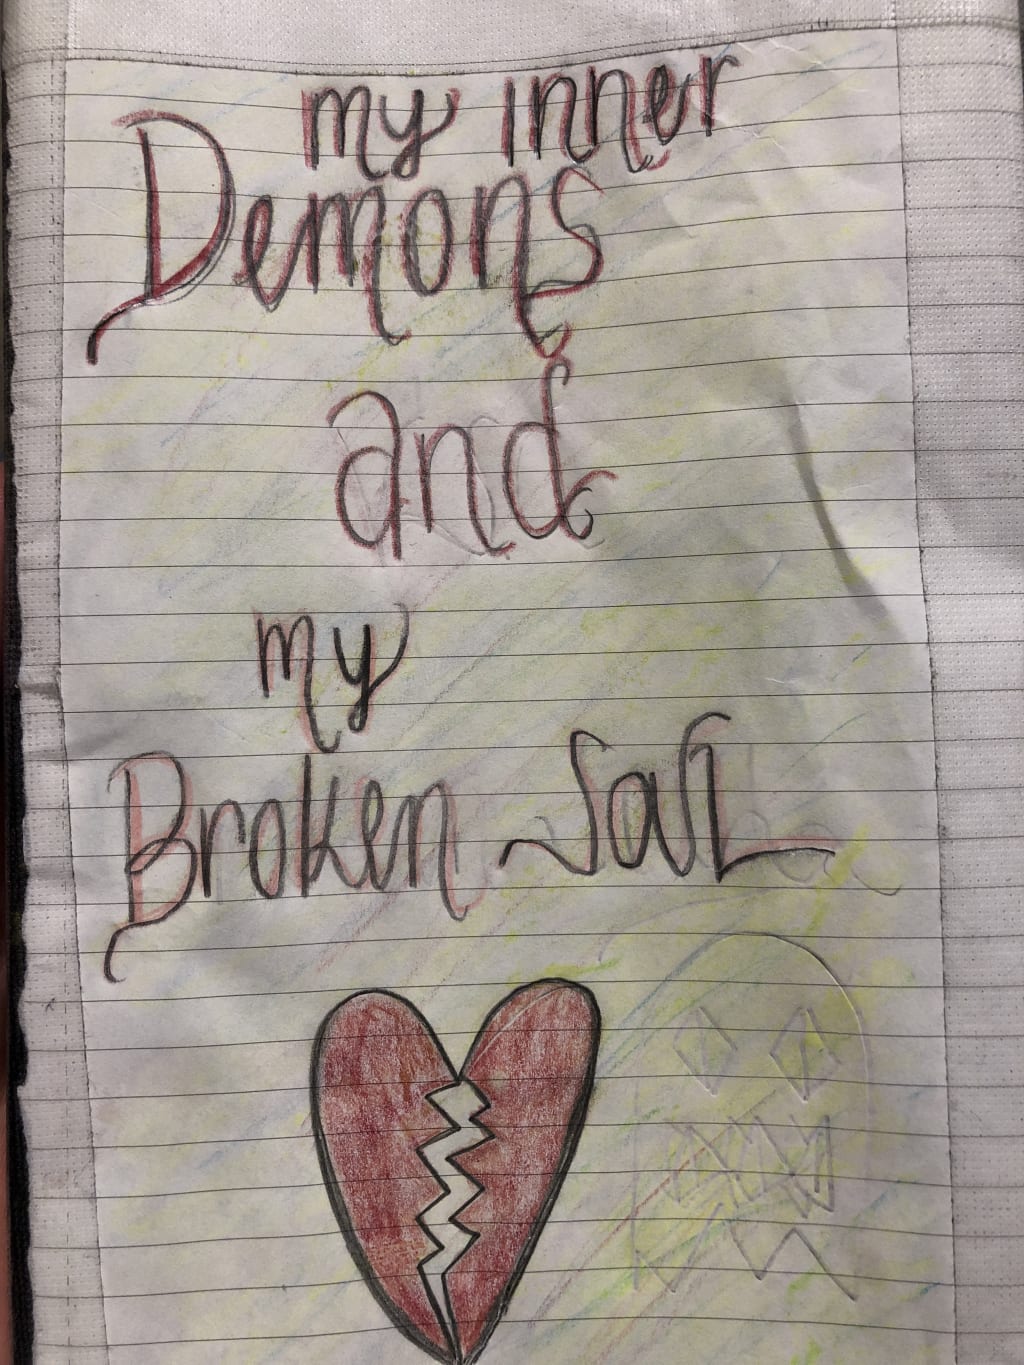 my inner
Demons
and
my
Broken Soul